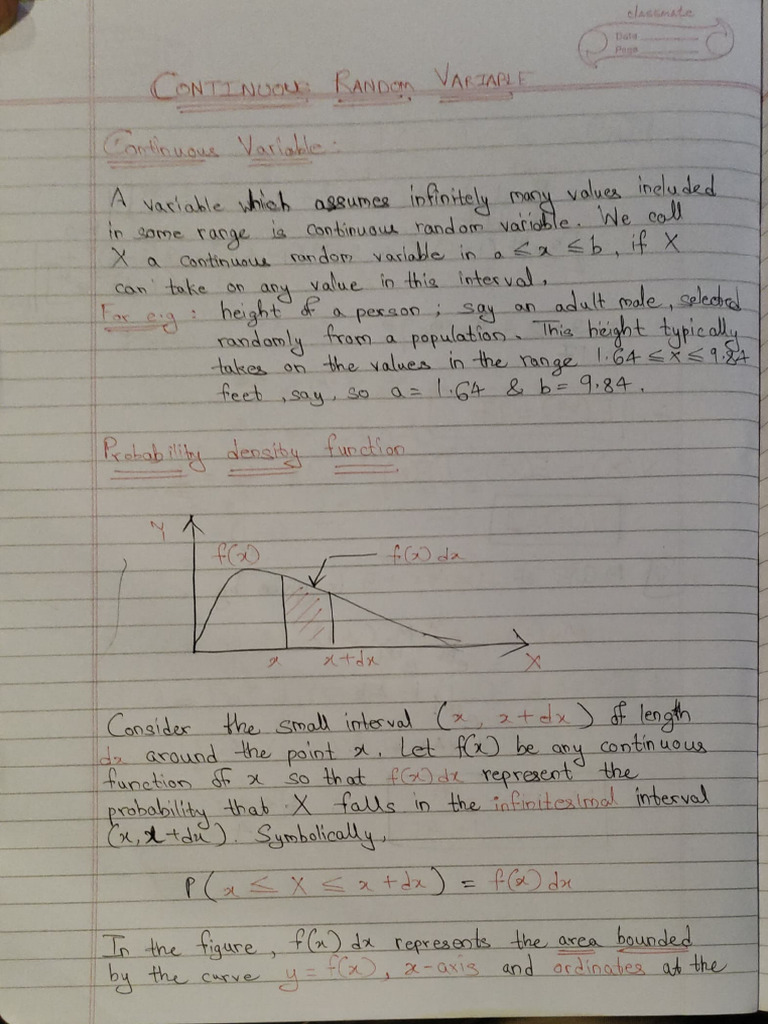 classmate
Date
Page
CONTINUOUS RANDOM VARIABLE
Continuous Variable:
A variable which assumes infinitely many values included
in some range is continuous random variable. We call
X a continuous random variable in a ≤ x ≤ b, if X
can take on any value in this interval.
For e.g : height of a person ; say an adult male, selected
randomly from a population. This height typically
takes on the values in the range 1.64 ≤ x ≤ 9.84
feet, say, so a = 1.64 & b = 9.84.
Probability density function
Y
f(x) f(x) dx
x x+dx X
Consider the small interval (x, x+dx) of length
dx around the point x. Let f(x) be any continuous
function of x so that f(x)dx represent the
probability that X falls in the infinitesimal interval
(x, x+dx). Symbolically,
P(x ≤ X ≤ x+dx) = f(x) dx
In the figure, f(x) dx represents the area bounded
by the curve y = f(x), x-axis and ordinates at the